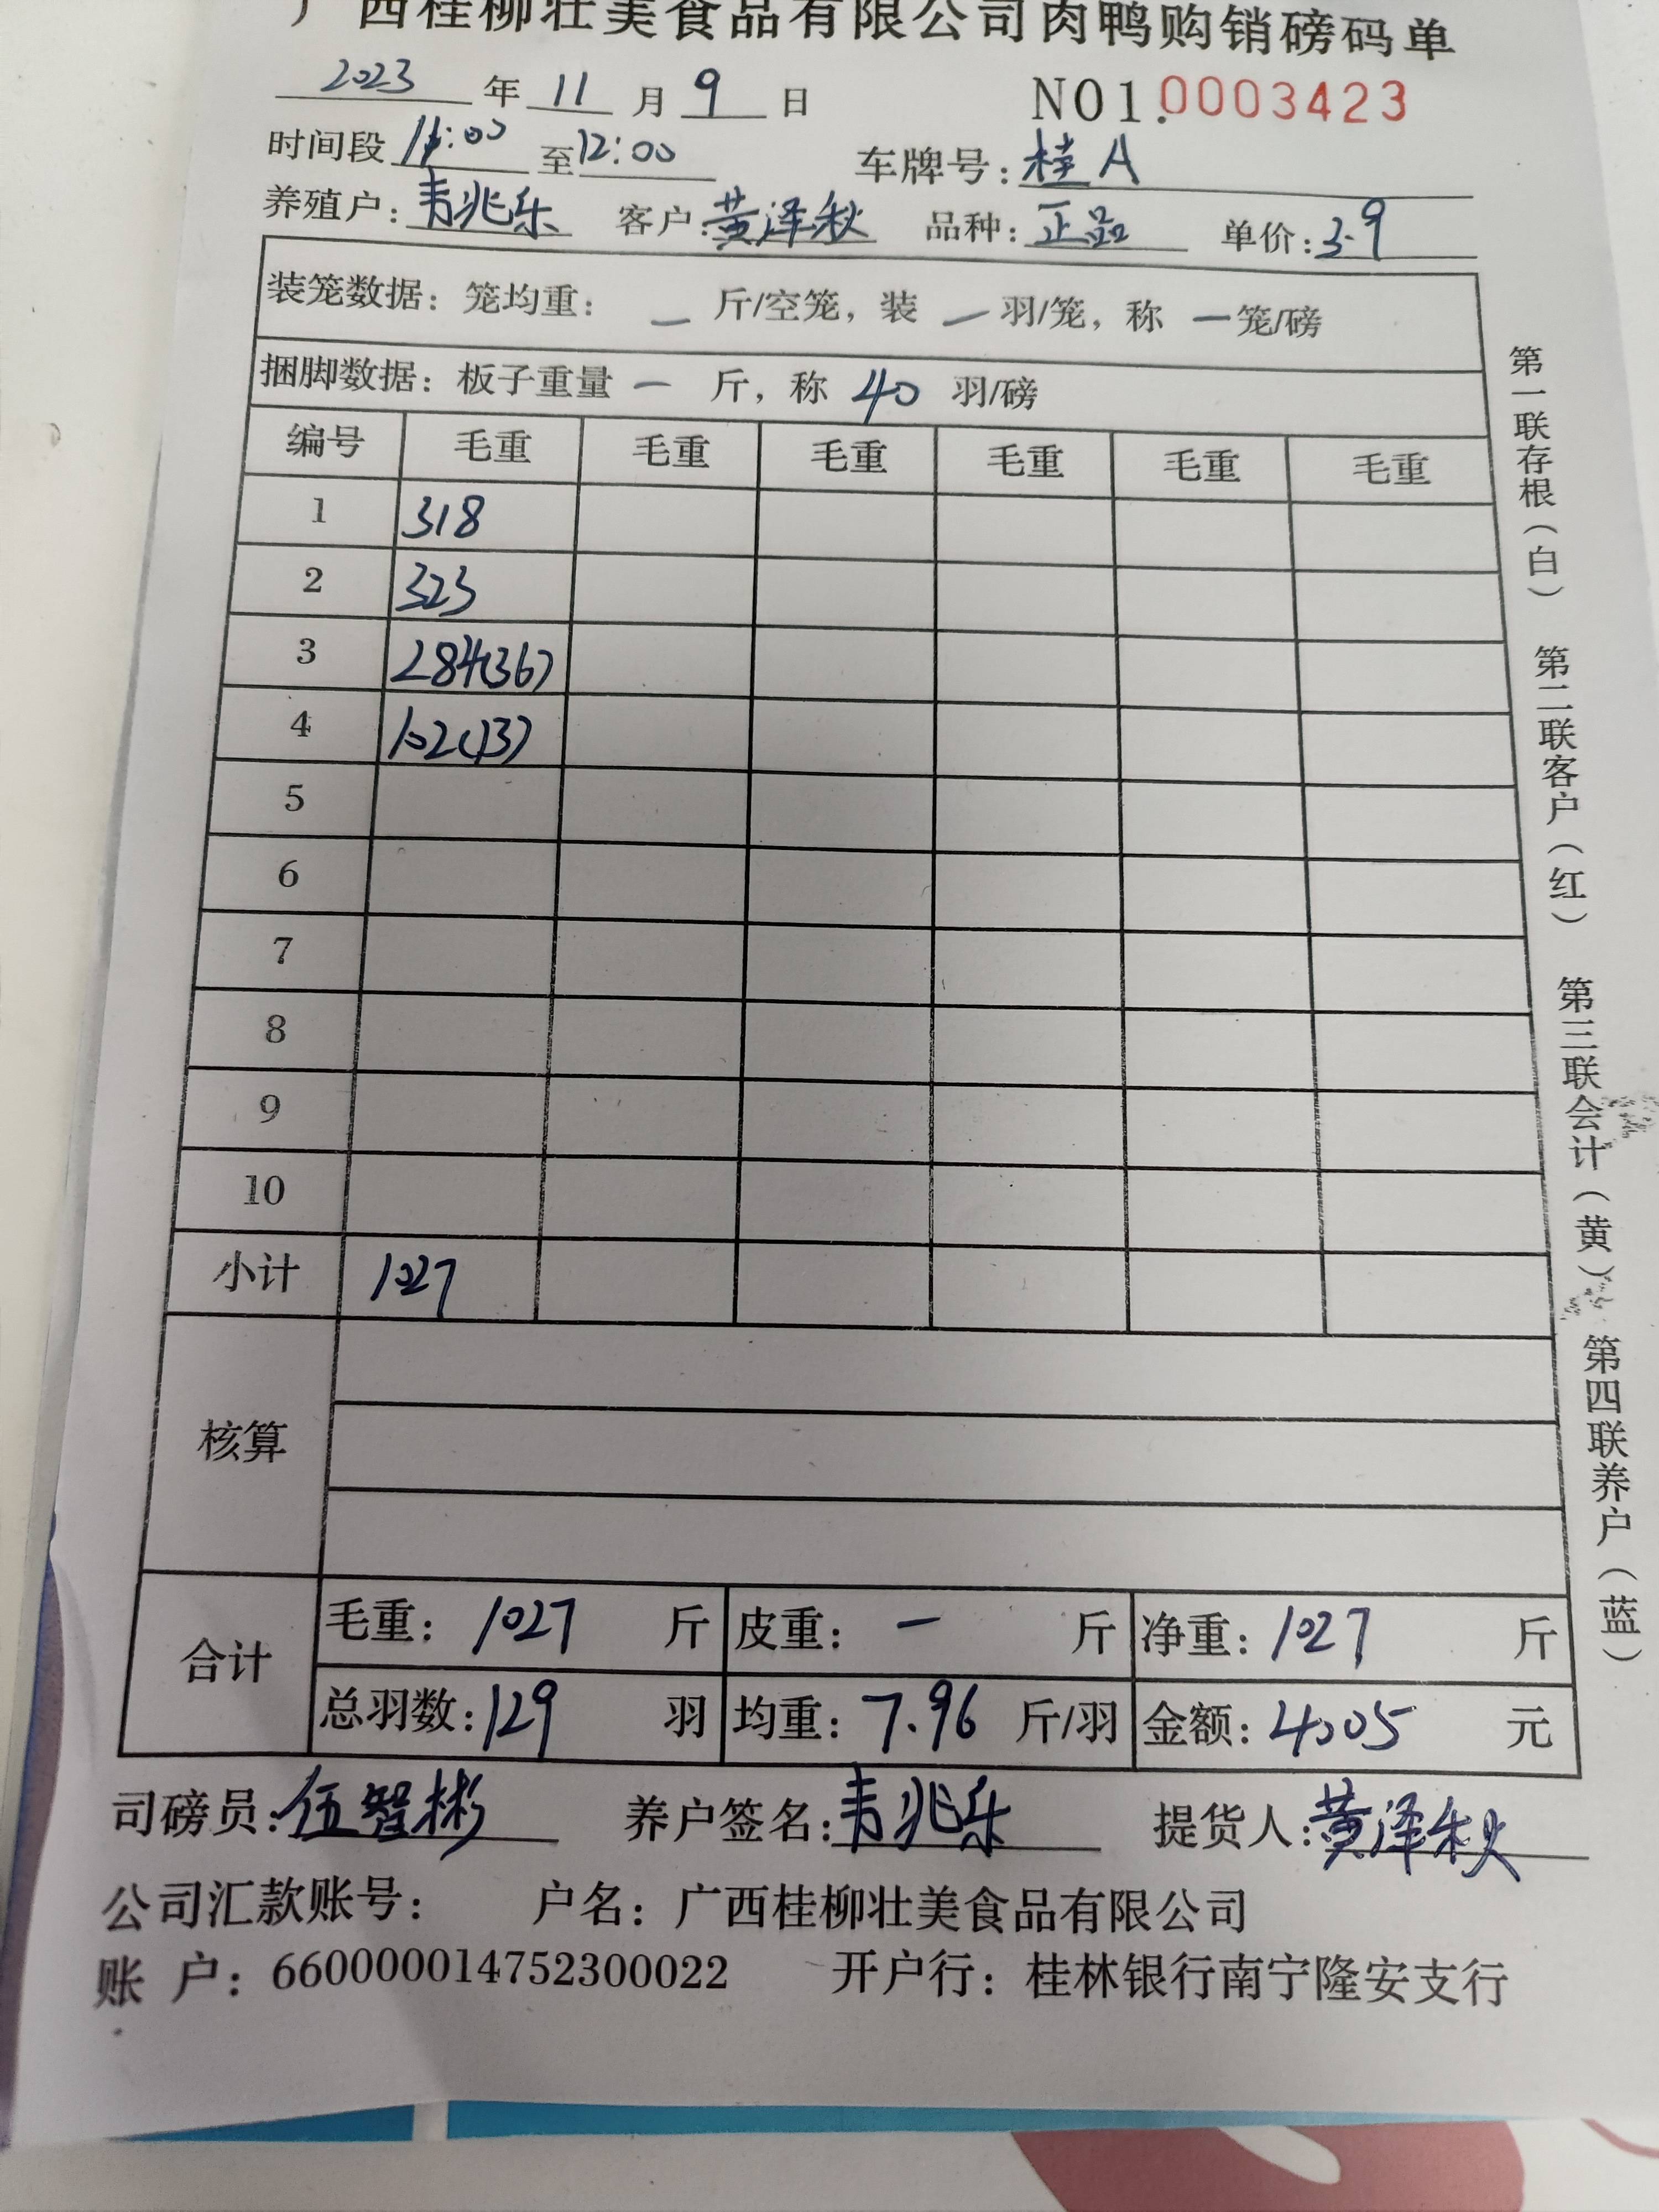 广西桂柳壮美食品有限公司肉鸭购销磅码单
2023 年 11 月 9 日 NO1.0003423
时间段 11:00 至 12:00 车牌号: 桂A
养殖户: 韦兆乐 客户: 黄泽秋 品种: 正品 单价: 3.9
装笼数据: 笼均重: — 斤/空笼, 装 — 羽/笼, 称 — 笼/磅
捆脚数据: 板子重量 — 斤, 称 40 羽/磅
编号 毛重 毛重 毛重 毛重 毛重 毛重
1 318
2 323
3 284(36)
4 102(13)
5
6
7
8
9
10
小计 1027
核算
合计 毛重: 1027 斤 皮重: — 斤 净重: 1027 斤
总羽数: 129 羽 均重: 7.96 斤/羽 金额: 4005 元
司磅员: 伍智彬 养户签名: 韦兆乐 提货人: 黄泽秋
公司汇款账号: 户名: 广西桂柳壮美食品有限公司
账 户: 660000014752300022 开户行: 桂林银行南宁隆安支行
第一联存根(白) 第二联客户(红) 第三联会计(黄) 第四联养户(蓝)